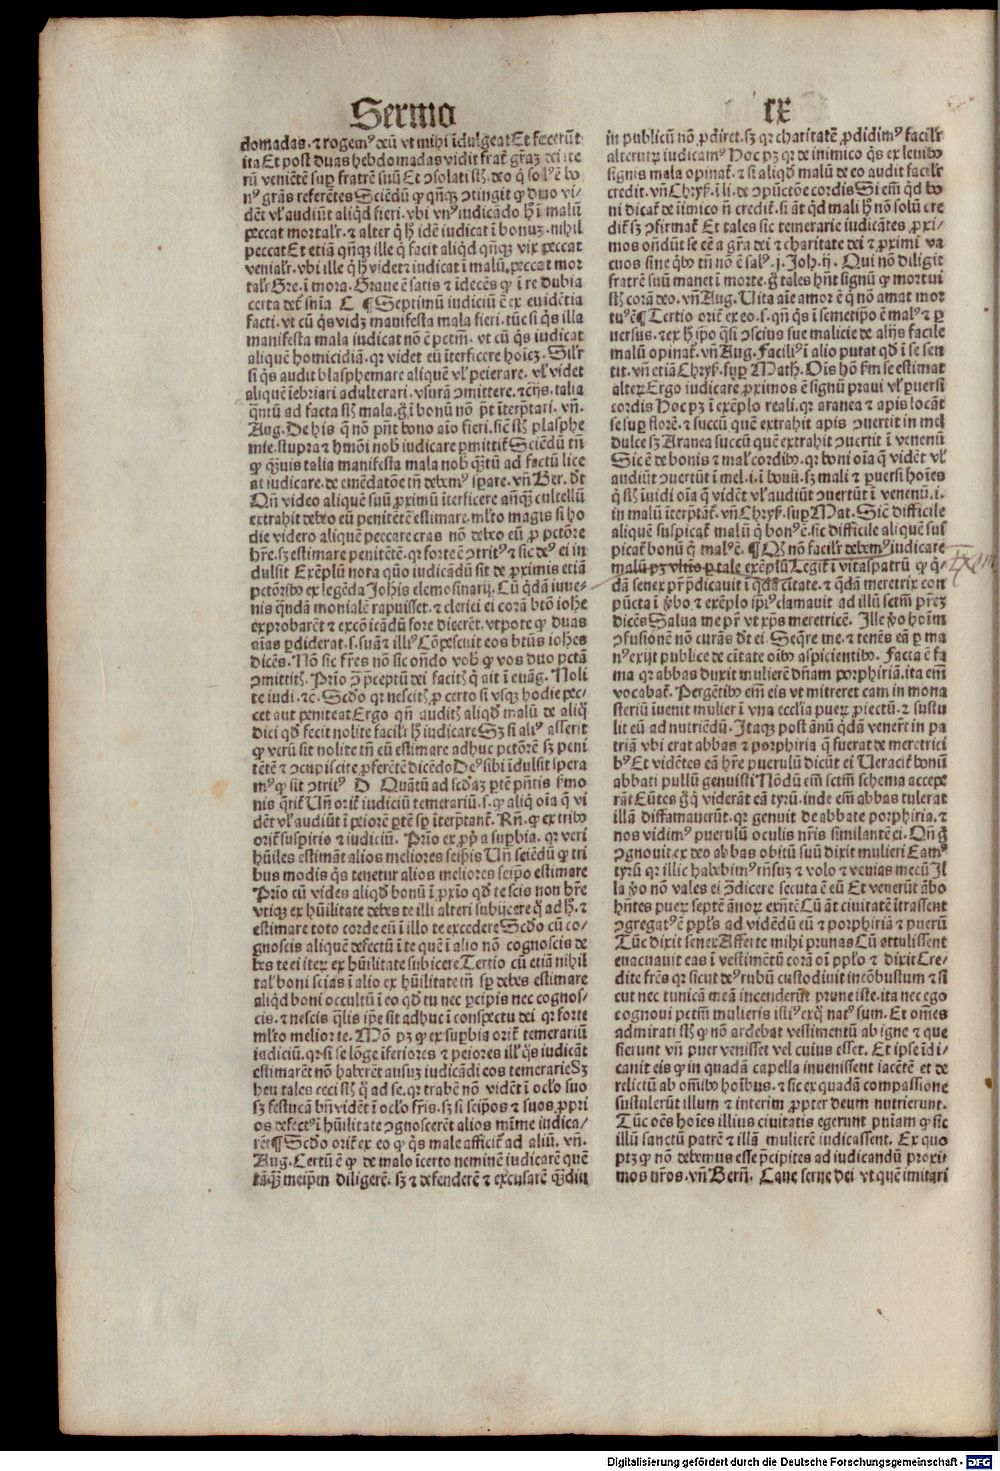 Sermo
domadas. ⁊ rogemꝰ deū vt mihi īdulgeat Et fecerūt
ita Et post duas hebdomadas vidit frat̄ gr̄az dei ite
rū veniētē suꝑ fratrē suū Et ꝯsolati st̄ deo
nꝰ gr̄as referētes Sciēdū ꝙ qn̄qꝫ ꝯtingit ꝙ duo vi⸗
dēt vl̓ audiūt aliqd̄ fieri. vbi vnꝰ iudicādo h̄ ī malū
peccat mortalr̄. ⁊ alter q̇ h̄ idē iudicat ī bonuz. nihil
peccat Et etiā qn̄qꝫ ille q̇ facit aliqd̄ qn̄qꝫ vix peccat
venialr̄. vbi ille q̇ h̄ videt ⁊ iudicat ī malū, peccat mor
talr̄ Gre. ī mora. Graue ē satis ⁊ īdecēs ꝙ ī re dubia
certa det̄ sn̄ia C ¶ Septimū iudiciū ē ex euidētia
facti. vt cū q̇s vidꝫ manifesta mala fieri. tūc si q̇s illa
manifesta mala iudicat nō ē pctm̄. vt cū q̇s iudicat
aliquē homicidiā. qꝛ videt eū īterficere hoīeꝫ. Silr̄
si q̇s audit blasphemare aliquē vl̓ peierare. vl̓ videt
aliquē īebriari adulterari. vsurā ꝯmittere. ⁊cꝰ. talia
q̄ntū ad facta st̄ mala. q̄ ī bonū nō pn̄t īterp̄tari. vn̄.
Aug. De his q̄ nō pn̄t bono aīo fieri. sic st̄ plasphe
mie. stupra ⁊ hmōi nob̄ iudicare ꝑmittit̄ Sciēdū tn̄
ꝙ q̄uis talia manifesta mala nob̄ q̄tū ad factū lice
at iudicare. de emēdatōe tn̄ debemꝰ sꝑare. vn̄ Ber. dt̄
Qn̄ video aliquē suū proximū īterficere cultellū
extrahit debeo eū penitētē estimare. ml̄to magis si ho
die videro aliquē peccare cras nō debeo eū ꝓ pctōre
hr̄e. sꝫ estimare penitētē. qꝛ forte ē ꝯtritꝰ ⁊ sic deꝰ ei in
dulsit Exēplū nota quō iudicādū sit de ꝓximis etiā
pctōribꝰ ex legēda Johis elemosinarij. Cū q̇dā iuue⸗
nis q̄ndā monialē rapuisset. ⁊ clerici ei corā btō iohe
exprobarēt ⁊ excōicādū fore dicerēt. vtpote ꝙ duas
aīas ꝑdiderat. s. suā ⁊ illiꝰ Cōpescuit eos btūs iohes
dicēs. Nō sic fr̄es nō sic on̄do vob̄ ꝙ vos duo pctā
ꝯmittitꝭ. Prio ꝯ p̄ceptū dei facitꝭ q̇ ait ī euāg. Noli
te iudi. ⁊c. Scd̄o qꝛ nescitꝭ ꝓ certo si vsqꝫ hodie pec⸗
cet aut peniteat Ergo qn̄ auditꝭ aliqd̄ malū de aliq̇
dici qd̄ fecit nolite facilr̄ h̄ iudicare Sꝫ si aliꝰ asserit
ꝙ verū sit nolite tn̄ eū estimare adhuc pctōrē sꝫ peni
tētē ⁊ ꝯcupiscite ꝓferētē dicēdo Deꝰ sibi īdulsit spera
mꝰ ꝙ sit ꝯtritꝰ D Quātū ad scd̄az ꝑtē pn̄tis s̄mo
nis q̄rit̄ Vn̄ orit̄ iudiciū temerariū. s. ꝙ aliq̇ oīa q̄ vi
dēt vl̓ audiūt ī peiorē ꝑtē sꝑ īterp̄tant̄. Rn̄. ꝙ ex tribꝰ
orit̄ suspitio ⁊ iudiciū. Prio ex ꝓp̓a suꝑbia. qꝛ veri
hūiles estimāt alios meliores seip̄is Vn̄ sciēdū ꝙ tri
bus modis q̇s tenetur alios meliores seipo estimare
Prio cū vides aliqd̄ bonū ī ꝓxīo qd̄ te scis non hr̄e
vtiqꝫ ex hūilitate debes te illi alteri subijcere q̊ ad h̄. ⁊
estimare toto corde eū ī illo te excedere Scd̄o cū co⸗
gnoscis aliquē defectū ī te quē ī alio nō cognoscis de
bes te ei iteꝝ ex hūilitate subicere Tertio cū etiā nihil
tal̓ boni scias ī alio ex hūilitate tn̄ sꝑ debes estimare
aliqd̄ boni occultū ī eo qd̄ tu nec ꝑcipis nec cognos⸗
cis. ⁊ nescis q̄lis ip̄e sit adhuc ī conspectu dei qꝛ forte
ml̄to melior te. Mō pꝫ ꝙ ex suꝑbia orit̄ temerariū
iudiciū. qꝛ si se lōge īferiores ⁊ peiores ill̓ q̇s iudicāt
estimarēt nō haberēt ausuꝫ iudicādi eos temerarie Sꝫ
heu tales ceci st̄ q̊ ad se. qꝛ trabē nō vidēt ī oclo suo
sꝫ festucā bn̄ vidēt ī oclo fr̄is. sꝫ si seip̄os ⁊ suos ꝓpri
os defectꝰ ī hūilitate ꝯgnoscerēt alios mīme iudica⸗
rēt ¶ Scd̄o orit̄ ex eo ꝙ q̇s male afficit̄ ad aliū. vn̄.
Aug. Certū ē ꝙ de malo īcerto neminē iudicarē quē
tāq̄ꝫ meip̄m diligerē. sꝫ ⁊ defenderē ⁊ excusarē q̄diu
IX
in publicū nō ꝓdiret. sꝫ qꝛ charitatē ꝓdidimꝰ facilr̄
alteruꝝ iudicamꝰ Hoc pꝫ qꝛ de inimico q̇s ex leuibꝰ
signis mala opinat̄. ⁊ si aliqd̄ malū de eo audit facilr̄
credit. vn̄ Chryſ. ī li. de ꝯpūctōe cordis Si em̄ qd̄ bo
ni dicat̄ de īimico n̄ credit̄. si āt qd̄ mali h̄ nō solū cre
dit̄ sꝫ ꝯfirmat̄ Et tales sic temerarie iudicātes ꝓxi⸗
mos on̄dūt se cē a gr̄a dei ⁊ charitate dei ⁊ ꝓximi va
cuos sine q̇bꝰ tn̄ nō ē salꝰ. j. Joh. ij. Qui nō diligit
fratrē suū manet ī morte. g̊ tales hn̄t signū ꝙ mortui
st̄ corā deo. vn̄ Aug. Uita aīe amor ē q̇ nō amat mor
tuꝰ ē ¶ Tertio orit̄ ex eo. s. qn̄ q̇s ī semetip̄o ē malꝰ ⁊ ꝑ
uersus. ⁊ ex h̄ ip̄o q̇si ꝯscius sue malicie de alijs facile
malū opinat̄. vn̄ Aug. Faciliꝰ ī alio putat qd̄ ī se sen
tit. vn̄ etiā Chryſ. suꝑ Math. Ois hō s̄m se estimat
alteꝝ Ergo iudicare ꝓximos ē signū praui vl̓ ꝑuersi
cordis Hoc pꝫ ī exēplo reali. qꝛ aranea ⁊ apis locāt
se suꝑ florē. ⁊ succū quē extrahit apis ꝯuertit in mel
dulce sꝫ Aranea succū quē extrahit ꝯuertit ī venenū
Sic ē de bonis ⁊ mal̓ cordibꝰ. qꝛ boni oīa q̄ vidēt vl̓
audiūt ꝯuertūt ī mel. i. ī bonū. sꝫ mali ⁊ ꝑuersi hoīes
q̇ st̄ īuidi oīa q̄ vidēt vl̓ audiūt ꝯuertūt ī venenū. i.
in malū īterp̄tāt̄. vn̄ Chryſ. suꝑ Mat. Sic ē difficile
aliquē suspicat̄ malū q̇ bonꝰ ē. sic difficile aliquē sus
picat̄ bonū q̇ malꝰ ē. ¶ Qꝙ nō facilr̄ debemꝰ iudicare
malū pꝫ vltīo ꝑ tale exēplū Legit̄ ī vitaspatrū ꝙ q̇⸗
dā senex pr̄ p̄dicauit ī q̄dā ciuitate. ⁊ q̄dā meretrix con
pūcta ī ꝟbo ⁊ exēplo ip̄iꝰ clamauit ad illū sctm̄ pr̄eꝫ
dicēs Salua me pr̄ vt xp̄s meretricē. Ille ꝟo hoīm
ꝯfusionē nō curās dt̄ ei. Seq̄re me. ⁊ tenēs eā ꝑ ma
nꝰ exijt publice de ciuitate oībꝰ aspicientibꝰ. Facta ē fa
ma qꝛ abbas duxit mulierē dn̄am porphiriā. ita em̄
vocabat̄. Pergētibꝰ em̄ eis vt mitreret eam in mona
steriū īuenit mulier ī vna ecclīa puerꝝ ꝓiectū. ⁊ sustu
lit eū ad nutriēdū. Itaqꝫ post ānū q̇dā venerūt in pa
triā vbi erat abbas ⁊ porphiria q̄ fuerat de meretrici
bꝰ Et vidētes eā hr̄e puerulū dicūt ei Ueracit̄ bonū
abbati pullū genuisti Nōdū em̄ sctm̄ schema accepe
rāt Eūtes g̊ q̇ viderāt eā tyrū. inde em̄ abbas tulerat
illā diffamauerūt. qꝛ genuit de abbate porphiria. ⁊
nos vidimꝰ puerulū oculis nr̄is similantē ei. Qn̄ g̊
ꝯgnouit ex deo abbas obitū suū dixit mulieri Eamꝰ
tyrū qꝛ illic habebimꝰ rn̄suꝫ ⁊ volo ⁊ venias mecū Il
la ꝟo nō vales ei ꝯdicere secuta ē eū Et venerūt ābo
hn̄tes pueꝝ septē ānoꝝ exn̄tē Cū āt ciuitatē ītrassent
ꝯgregatꝰ ē ppl̓s ad vidēdū eū ⁊ porphiriā ⁊ puerū
Tūc dixit senex Afferte mihi prunas Cū attulissent
euacuauit eas ī vestimētū corā oī pplo ⁊ dixit Cre⸗
dite fr̄es qꝛ sicut deꝰ rubū custodiuit incōbustum ⁊ si
cut nec tunicā meā incenderūt prune iste. ita nec ego
cognoui pctm̄ mulieris istiꝰ ex q̊ natꝰ sum. Et om̄es
admirati st̄ ꝙ nō ardebat vestimentū ab igne ⁊ que
sierunt vn̄ puer venisset vel cuius esset. Et ipse īdi⸗
cauit eis ꝙ in quadā capella inuenissent iacētē et de
relictū ab om̄ibꝰ hoībus. ⁊ sic ex quadā compassione
sustulerūt illum ⁊ interim ꝓpter deum nutrierunt.
Tūc oēs hoīes illius ciuitatis egerunt pn̄iam ꝙ sic
illū sanctū patrē ⁊ illā mulierē iudicassent. Ex quo
ptꝫ ꝙ nō debemus esse p̄cipites ad iudicandū proxi
mos nr̄os. vn̄ Bern̄. Caue serue dei vt quē imitari
Digitalisierung gefördert durch die Deutsche Forschungsgemeinschaft - DFG